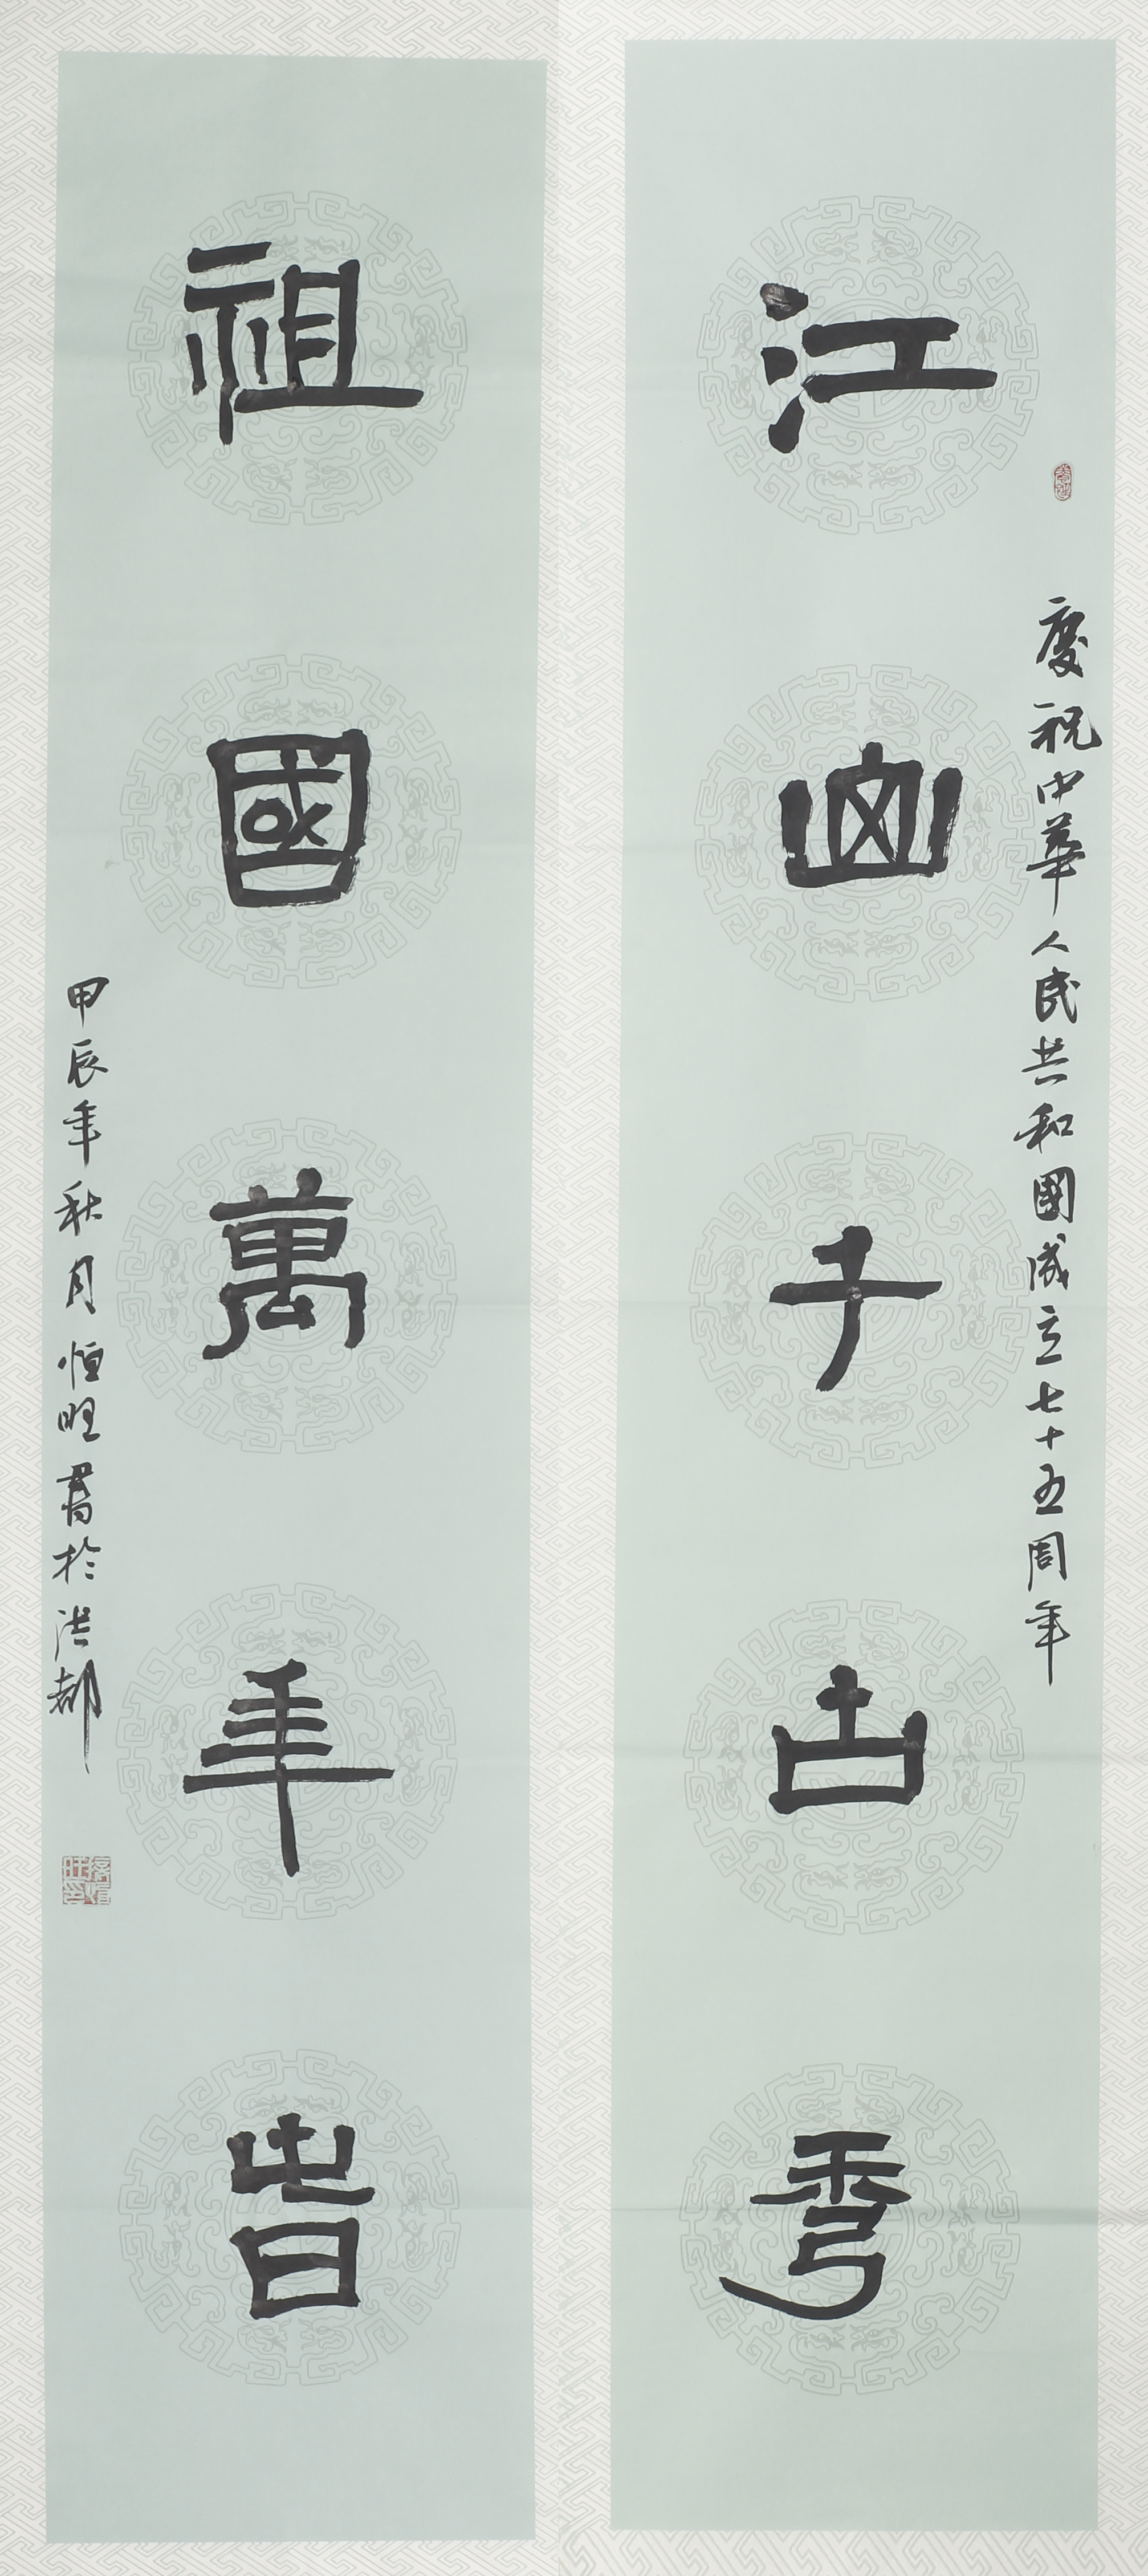 慶祝中華人民共和國成立七十五周年
江山千古秀
祖國萬年春
甲辰年秋月恒旺書於洪都